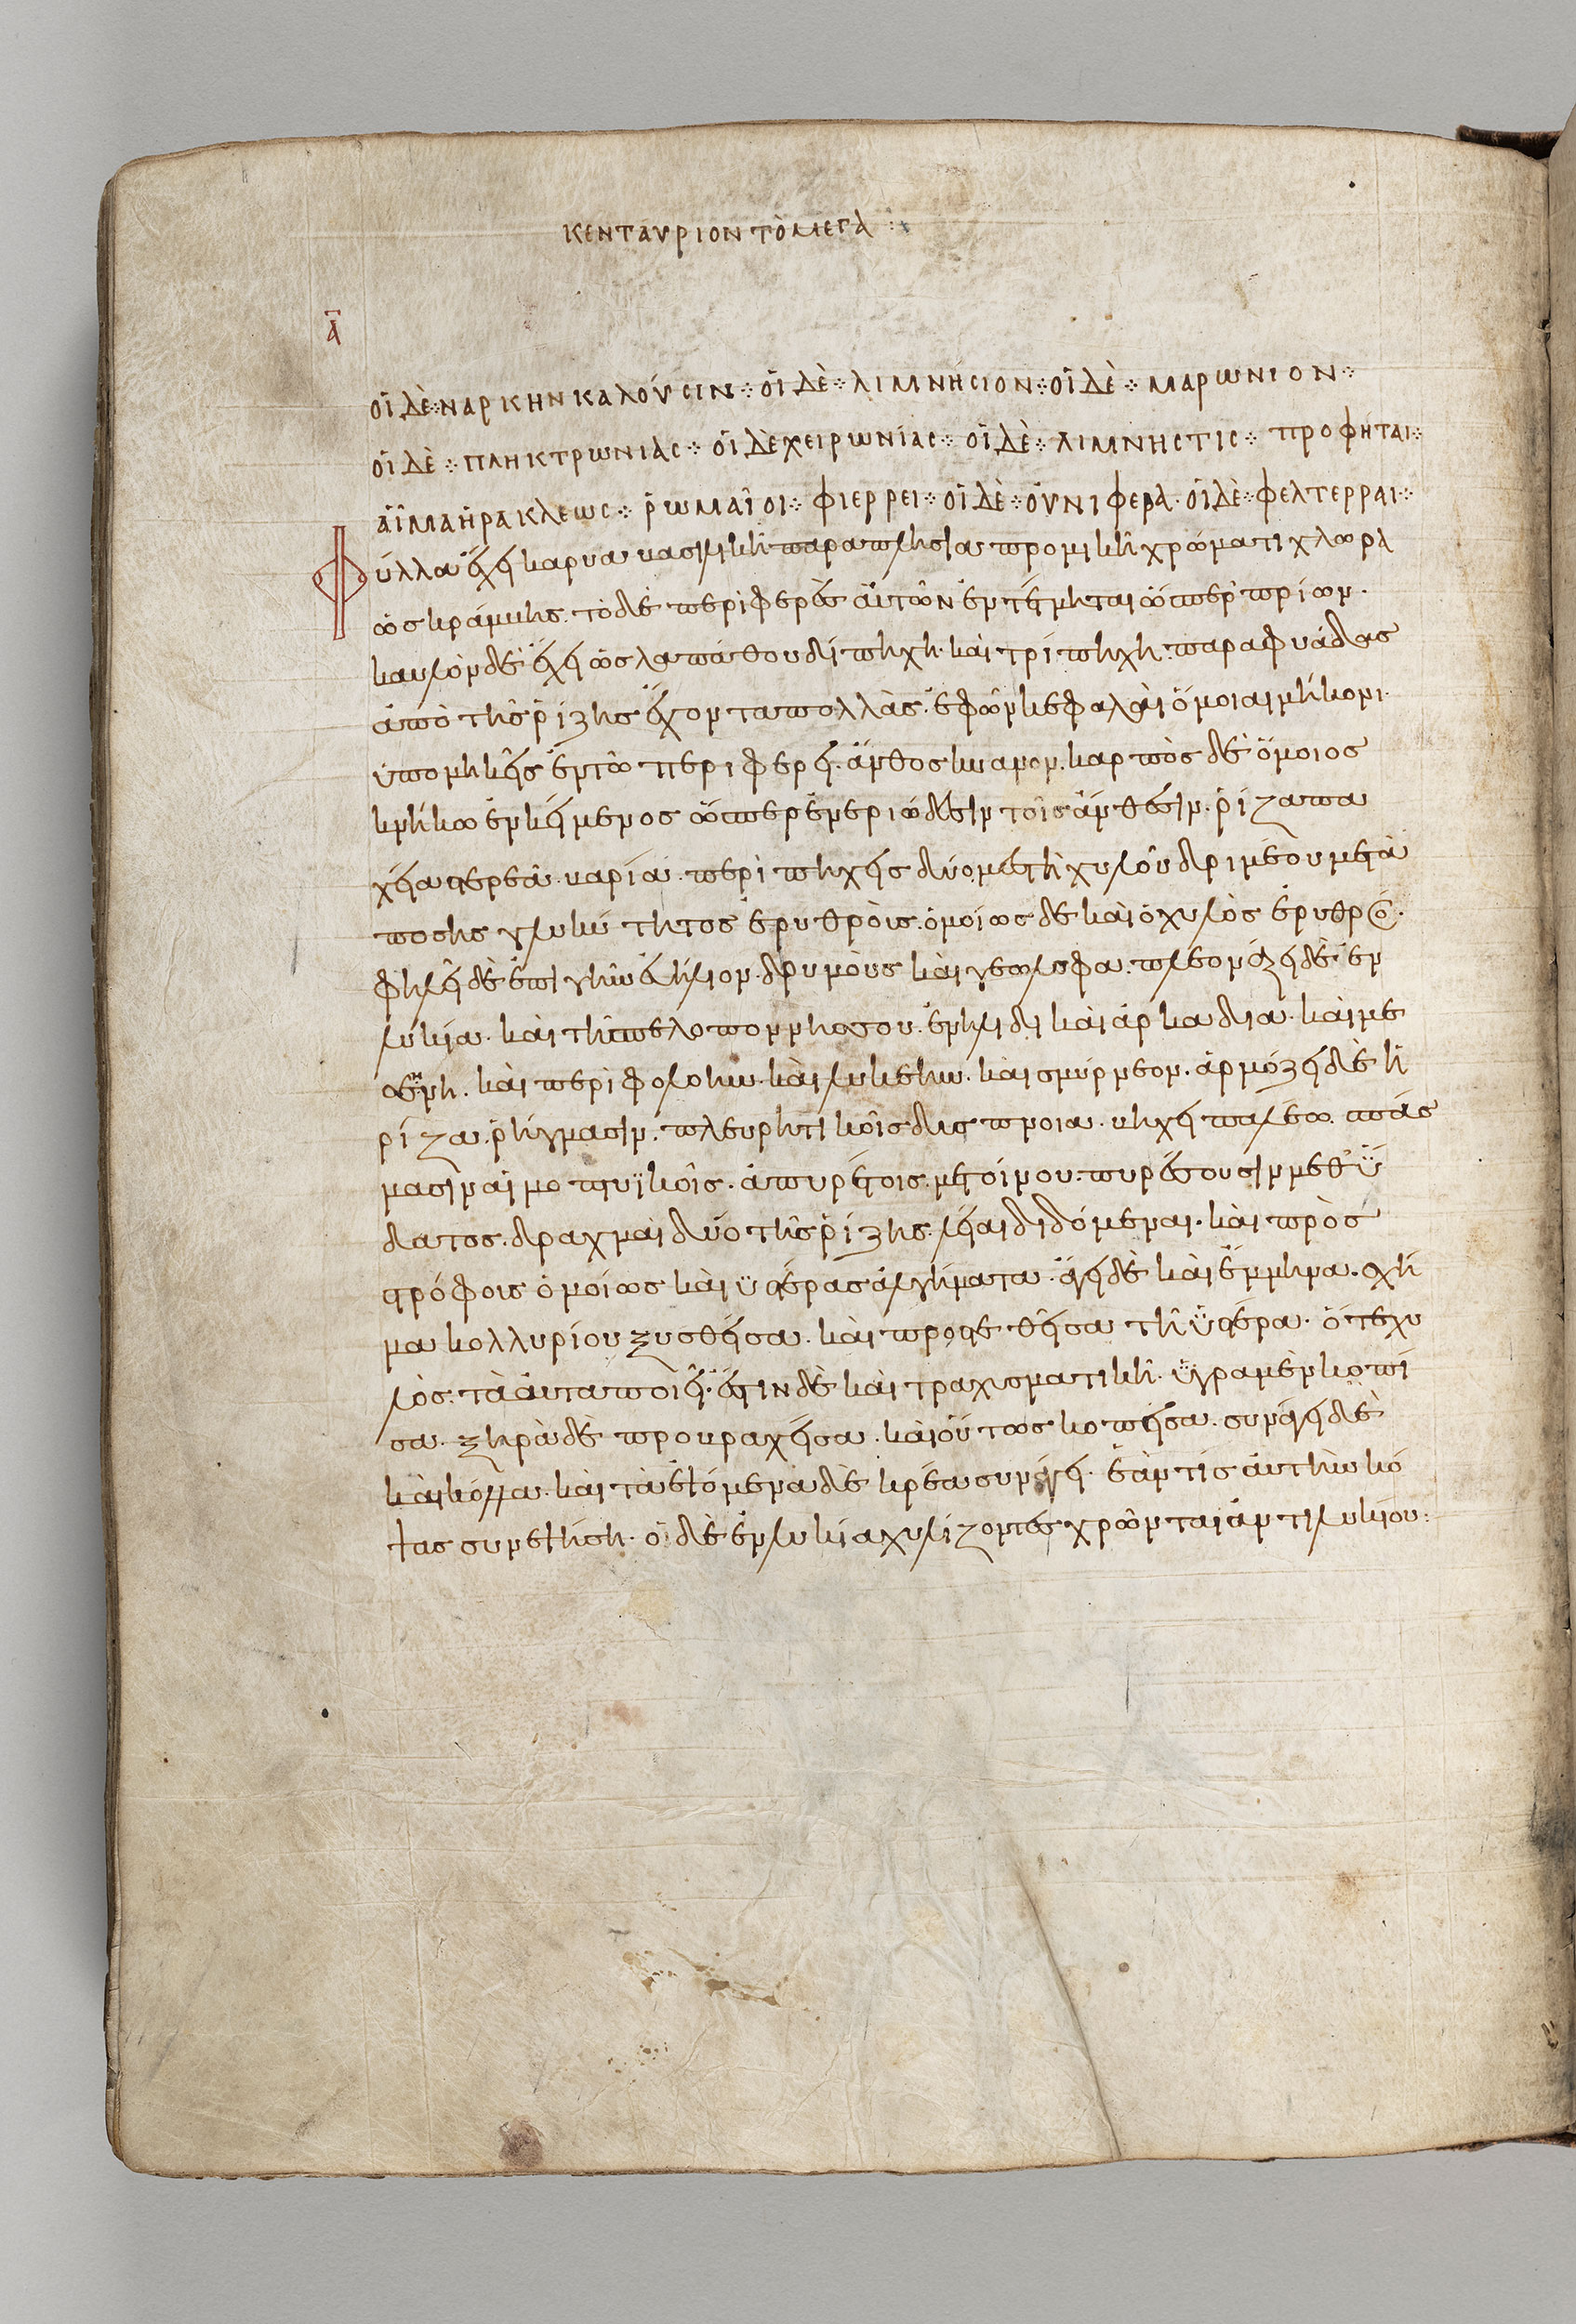 ΚΕΝΤΑΥΡΙΟΝ ΤΟ ΜΕΓΑ
Α
οἱ δὲ ναρκην καλοῦσιν· οἱ δὲ λιμνήσιον· οἱ δὲ μαρωνιον·
οἱ δὲ πληκτρωνιας· οἱ δὲ χειρωνίας· οἱ δὲ λιμνηστις· προφήται·
αἷμα ἡρακλεως· ῥωμαῖοι· φιερρει· οἱ δὲ οὐνιφερα· οἱ δὲ φελτερραι·
Φύλλα ἔχει καρυα βασιλικῆ παραπλήσια προμικῆ χρώματι χλωρα
ὡς κράμβης. τὸ δὲ περιφερὲς αὐτῶν ἐντέτμηται ὥσπερ πρίων.
καυλὸν δὲ ἔχει ὡς λαπάθου δίπηχη καὶ τρίπηχη παραφυάδας
ἀπὸ τῆς ῥίζης ἔχοντα πολλὰς. ἐφ ὧν κεφαλαὶ ὅμοιαι μήκονι
ὑπομήκεις ἐν τῶ περιφερεῖ. ἄνθος κυανον. καρπὸς δὲ ὅμοιος
κνήκω ἐνκείμενος ὥσπερ ἐν ἐριώδεσιν τοῖς ἄνθεσιν. ῥίζα πα
χεῖα στερεὰ. βαρία. περὶ πηχεις δύο μεστὴ χυλοῦ δριμέου μετὰ
ποσης γλυκύτητος ἐρυθροῖς. ὁμοίως δε καὶ ὁ χυλὸς ἐρυθρος.
φιλεῖ δὲ ἐπὶ γῆν εὐήλιον. δρυμοὺς καὶ γεωλοφα. πλεονάζει δὲ ἐν
λυκία. καὶ τῆ πελοποννησου. ἐν ηλιδι καὶ ἀρκαδια. καὶ με
σσηνη. καὶ περὶ φολοην. καὶ λυκεην. καὶ σμύρνεον. ἁρμόζει δὲ ἡ
ρίζα. ῥήγμασιν. πλευρητικοῖς δυσπνοια. βηχὶ παλεω. σπάσ
μασιν αἱμοπτυϊκοῖς. ἀπυρέτοις. μετ οίνου. πυρέττουσιν μεθ ὕ
δατος. δραχμαὶ δύο τῆς ῥίζης. λεῖαι διδόμεναι. καὶ πρὸς
στρόφοις ὁμοίως καὶ ὑστέρας ἀλγήματα. ἄγει δὲ καὶ ἔμμηνα. σχῆ
μα κολλυρίου ξυσθεῖσα. καὶ προστεθεῖσα τῆ ὑστέρα. ὅ τε χυ
λὸς. τὰ αὐτα ποιεῖ. ἔστιν δὲ καὶ τραυματικῆ. ὑγρα μὲν κοπί
σα. ξηρὰ δὲ προβραχεῖσα. καὶ οὕτως κοπεῖσα. συνάγει δὲ
καὶ κόλλα. καὶ τὰ ἑψόμενα δὲ κρέα συνάγει. ἐάν τις αὐτὴν κό
ψας συνεψήση. οἱ δὲ ἐν λυκία χυλίζοντες χρῶνται ἀντι λυκίου: